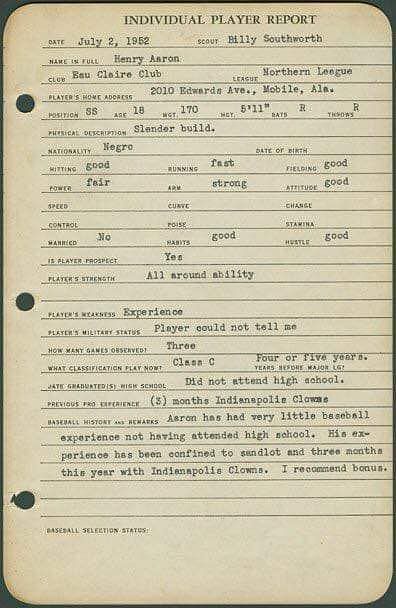 INDIVIDUAL PLAYER REPORT
DATE July 2, 1952 SCOUT Billy Southworth
NAME IN FULL Henry Aaron
CLUB Eau Claire Club LEAGUE Northern League
PLAYER'S HOME ADDRESS 2010 Edwards Ave., Mobile, Ala.
POSITION SS AGE 18 WGT. 170 HGT. 5'11" BATS R THROWS R
PHYSICAL DESCRIPTION Slender build.
NATIONALITY Negro DATE OF BIRTH
HITTING good RUNNING fast FIELDING good
POWER fair ARM strong ATTITUDE good
SPEED CURVE CHANGE
CONTROL POISE STAMINA
MARRIED No HABITS good HUSTLE good
IS PLAYER PROSPECT Yes
PLAYER'S STRENGTH All around ability
PLAYER'S WEAKNESS Experience
PLAYER'S MILITARY STATUS Player could not tell me
HOW MANY GAMES OBSERVED? Three
WHAT CLASSIFICATION PLAY NOW? Class C Four or five years. YEARS BEFORE MAJOR LG?
DATE GRADUATED(S) HIGH SCHOOL Did not attend high school.
PREVIOUS PRO EXPERIENCE (3) months Indianapolis Clowns
BASEBALL HISTORY AND REMARKS Aaron has had very little baseball
experience not having attended high school. His ex-
perience has been confined to sandlot and three months
this year with Indianapolis Clowns. I recommend bonus.
BASEBALL SELECTION STATUS: